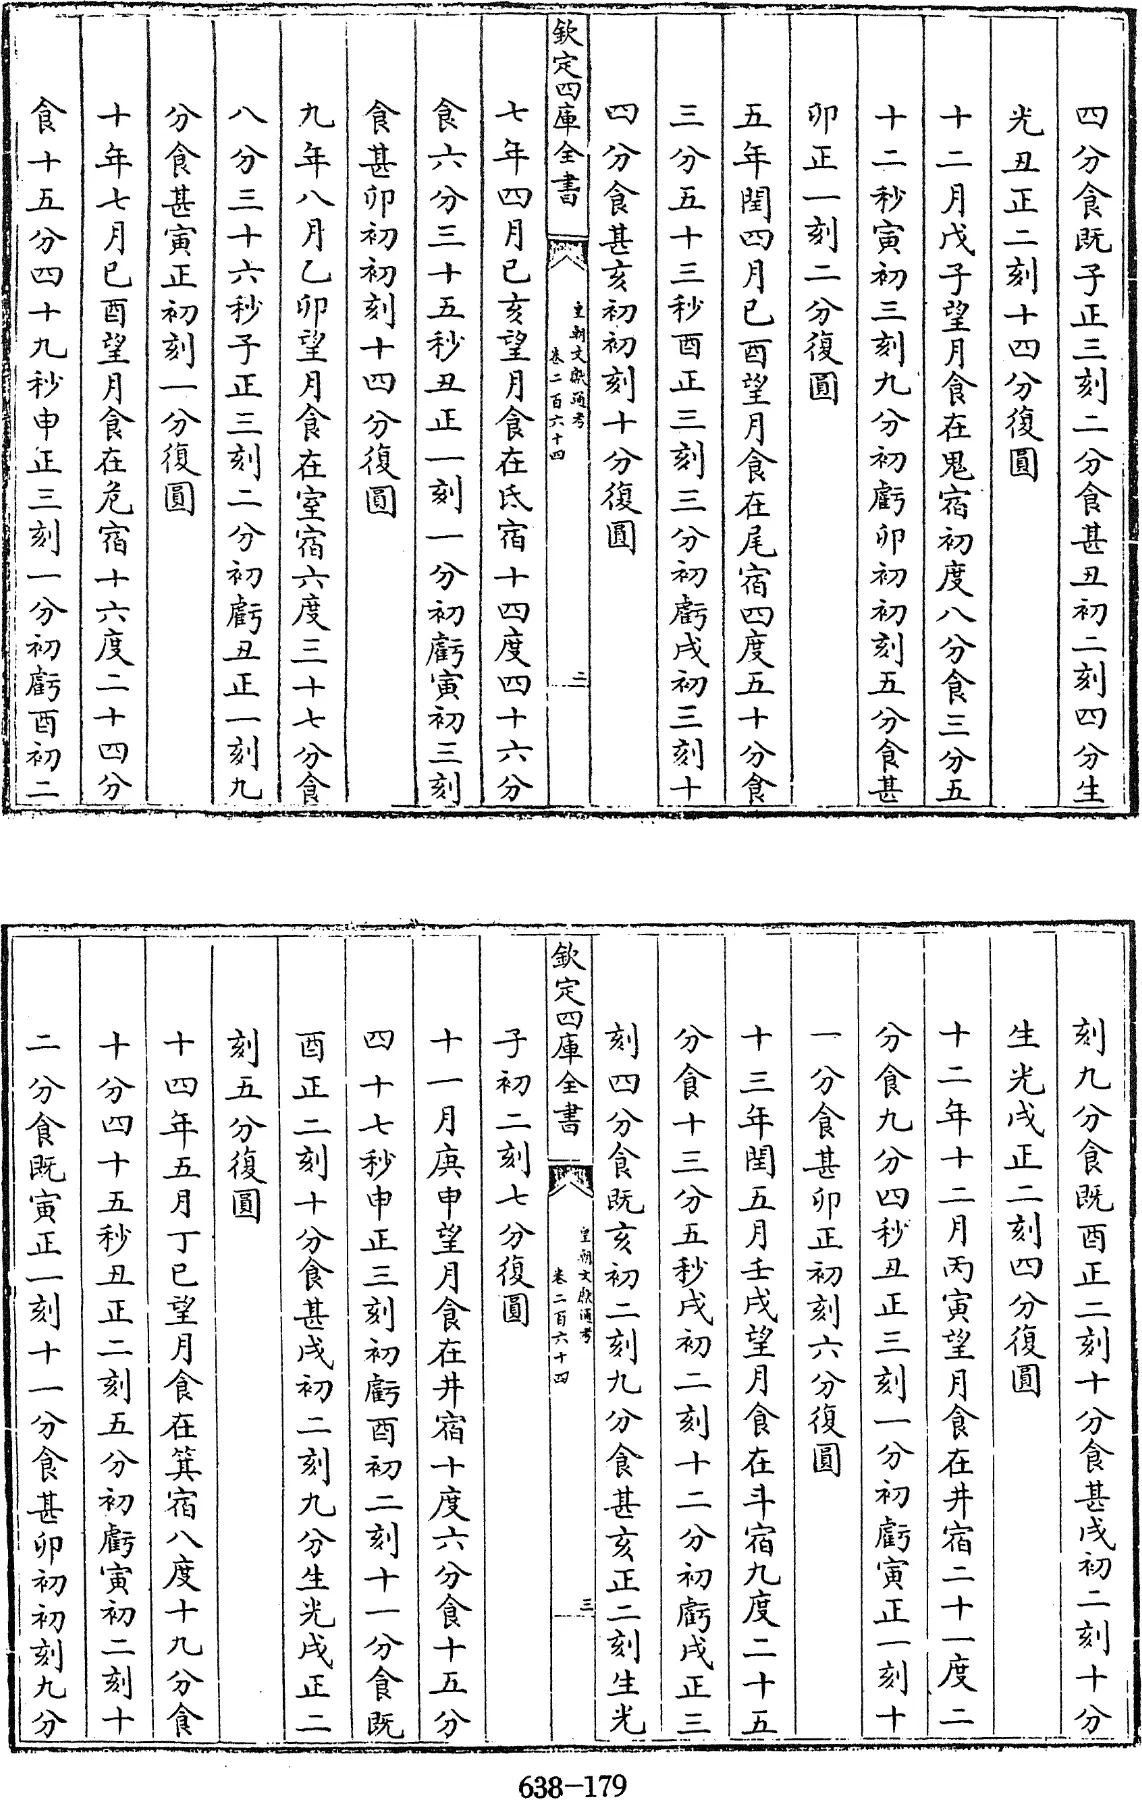 四分食既子正三刻二分食甚丑初二刻四分生
光丑正二刻十四分復圓
十二月戊子望月食在鬼宿初度八分食三分五
十二秒寅初三刻九分初虧卯初初刻五分食甚
卯正一刻二分復圓
五年閏四月已酉望月食在尾宿四度五十分食
三分五十三秒酉正三刻三分初虧戌初三刻十
四分食甚亥初初刻十分復圓
欽定四庫全書
皇朝文獻通考
卷二百六十四
二
七年四月已亥望月食在氐宿十四度四十六分
食六分三十五秒丑正一刻一分初虧寅初三刻
食甚卯初初刻十四分復圓
九年八月乙卯望月食在室宿六度三十七分食
八分三十六秒子正三刻二分初虧丑正一刻九
分食甚寅正初刻一分復圓
十年七月已酉望月食在危宿十六度二十四分
食十五分四十九秒申正三刻一分初虧酉初二
刻九分食既酉正二刻十分食甚戌初二刻十分
生光戌正二刻四分復圓
十二年十二月丙寅望月食在井宿二十一度二
分食九分四秒丑正三刻一分初虧寅正一刻十
一分食甚卯正初刻六分復圓
十三年閏五月壬戌望月食在斗宿九度二十五
分食十三分五秒戌初二刻十二分初虧戌正三
刻四分食既亥初二刻九分食甚亥正二刻生光
欽定四庫全書
皇朝文獻通考
卷二百六十四
三
子初二刻七分復圓
十一月庚申望月食在井宿十度六分食十五分
四十七秒申正三刻初虧酉初二刻十一分食既
酉正二刻十分食甚戌初二刻九分生光戌正二
刻五分復圓
十四年五月丁巳望月食在箕宿八度十九分食
十分四十五秒丑正二刻五分初虧寅初二刻十
二分食既寅正一刻十一分食甚卯初初刻九分
638-179